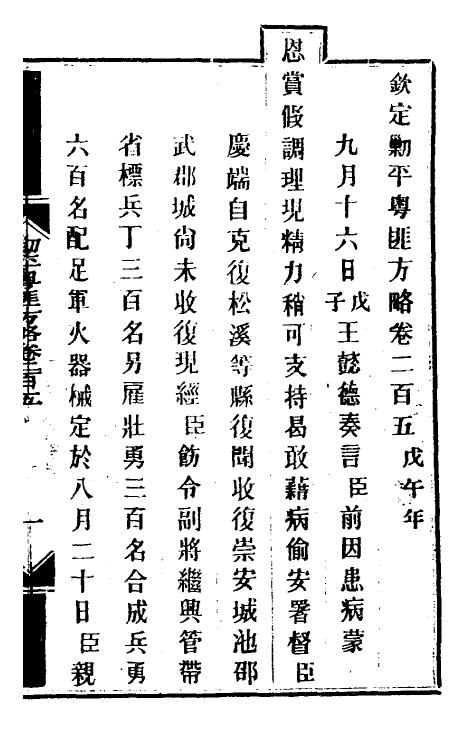 欽定勦平粵匪方略卷二百五 戊午年
九月十六日戊子王懿德奏言臣前因患病蒙
恩賞假調理現精力稍可支持曷敢藉病偷安署督臣
慶端自克復松溪等縣復聞收復崇安城池邵
武郡城尚未收復現經臣飭令副將繼興管帶
省標兵丁三百名另雇壯勇三百名合成兵勇
六百名配足軍火器械定於八月二十日臣親